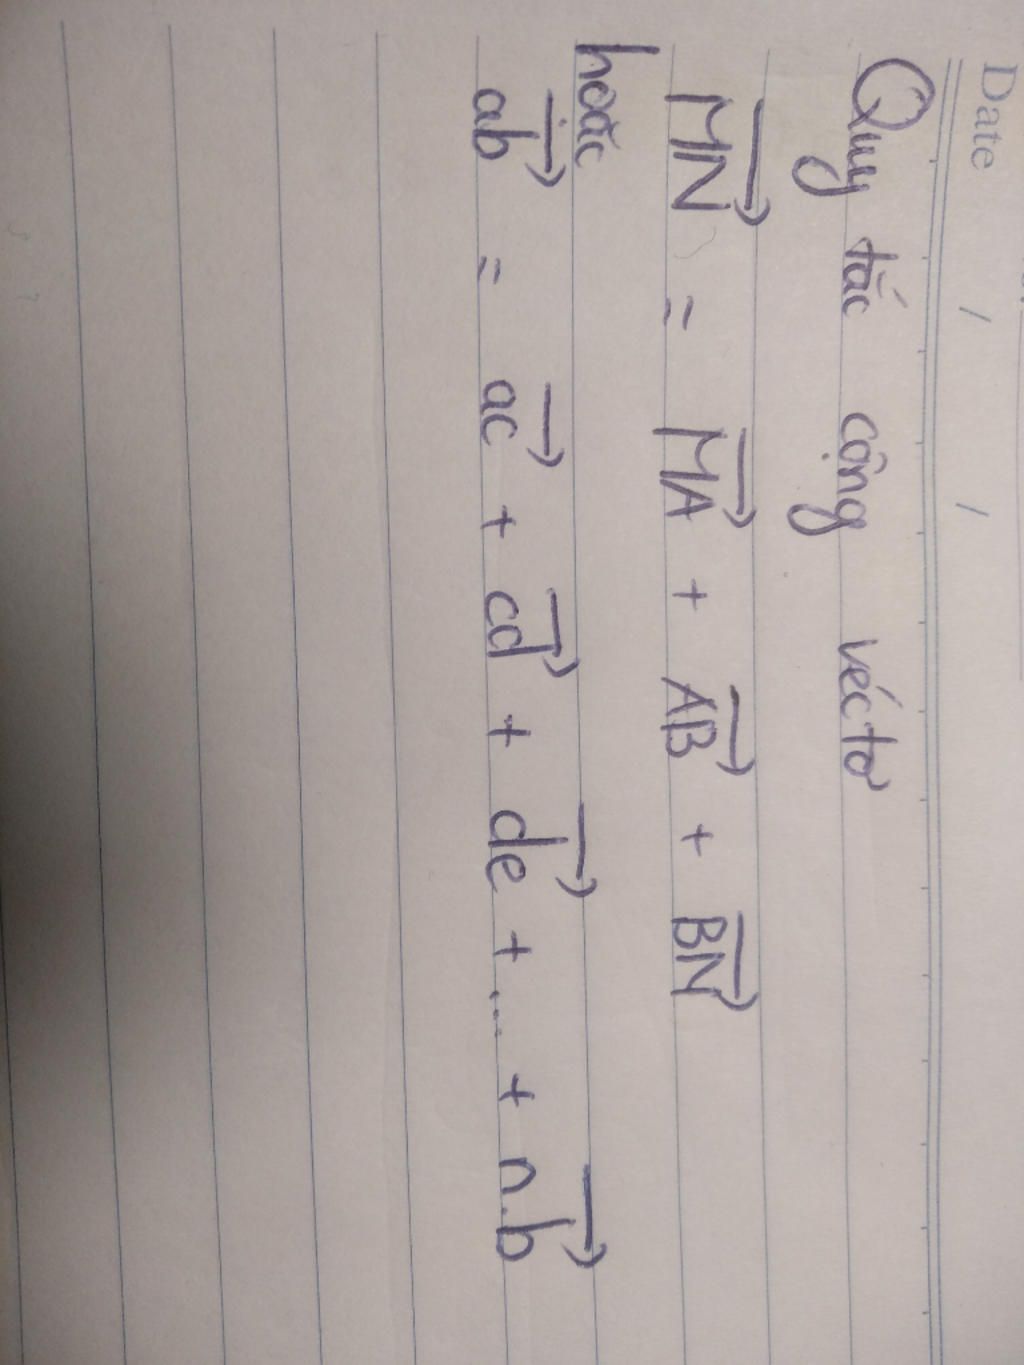 Date / /
Quy tắc cộng véctơ
$\overrightarrow{MN} = \overrightarrow{MA} + \overrightarrow{AB} + \overrightarrow{BN}$
hoặc
$\overrightarrow{ab} = \overrightarrow{ac} + \overrightarrow{cd} + \overrightarrow{de} + ... + \overrightarrow{n.b}$